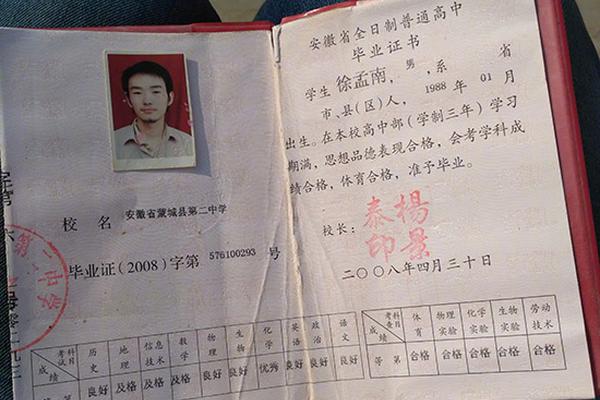 校 名 安徽省蒙城县第二中学
毕业证(2008)字第 576100293 号
第二中学
考试科目 历史 地理 信息技术 数学 物理 生物 化学 英语 政治 语文
成绩 良好 及格 及格 及格 良好 良好 优秀 良好 良好 良好
安徽省全日制普通高中
毕业证书
学生 徐孟南，男，系 省
市、县(区)人，1988 年 01 月
出生。在本校高中部(学制三年)学习
期满，思想品德表现合格，会考学科成
绩合格，体育合格，准予毕业。
校长： 秦楊印景
二〇〇八年四月三十日
考查科目 体育 物理实验 化学实验 生物实验 劳动技术
成绩 等第 合格 合格 合格 合格 合格